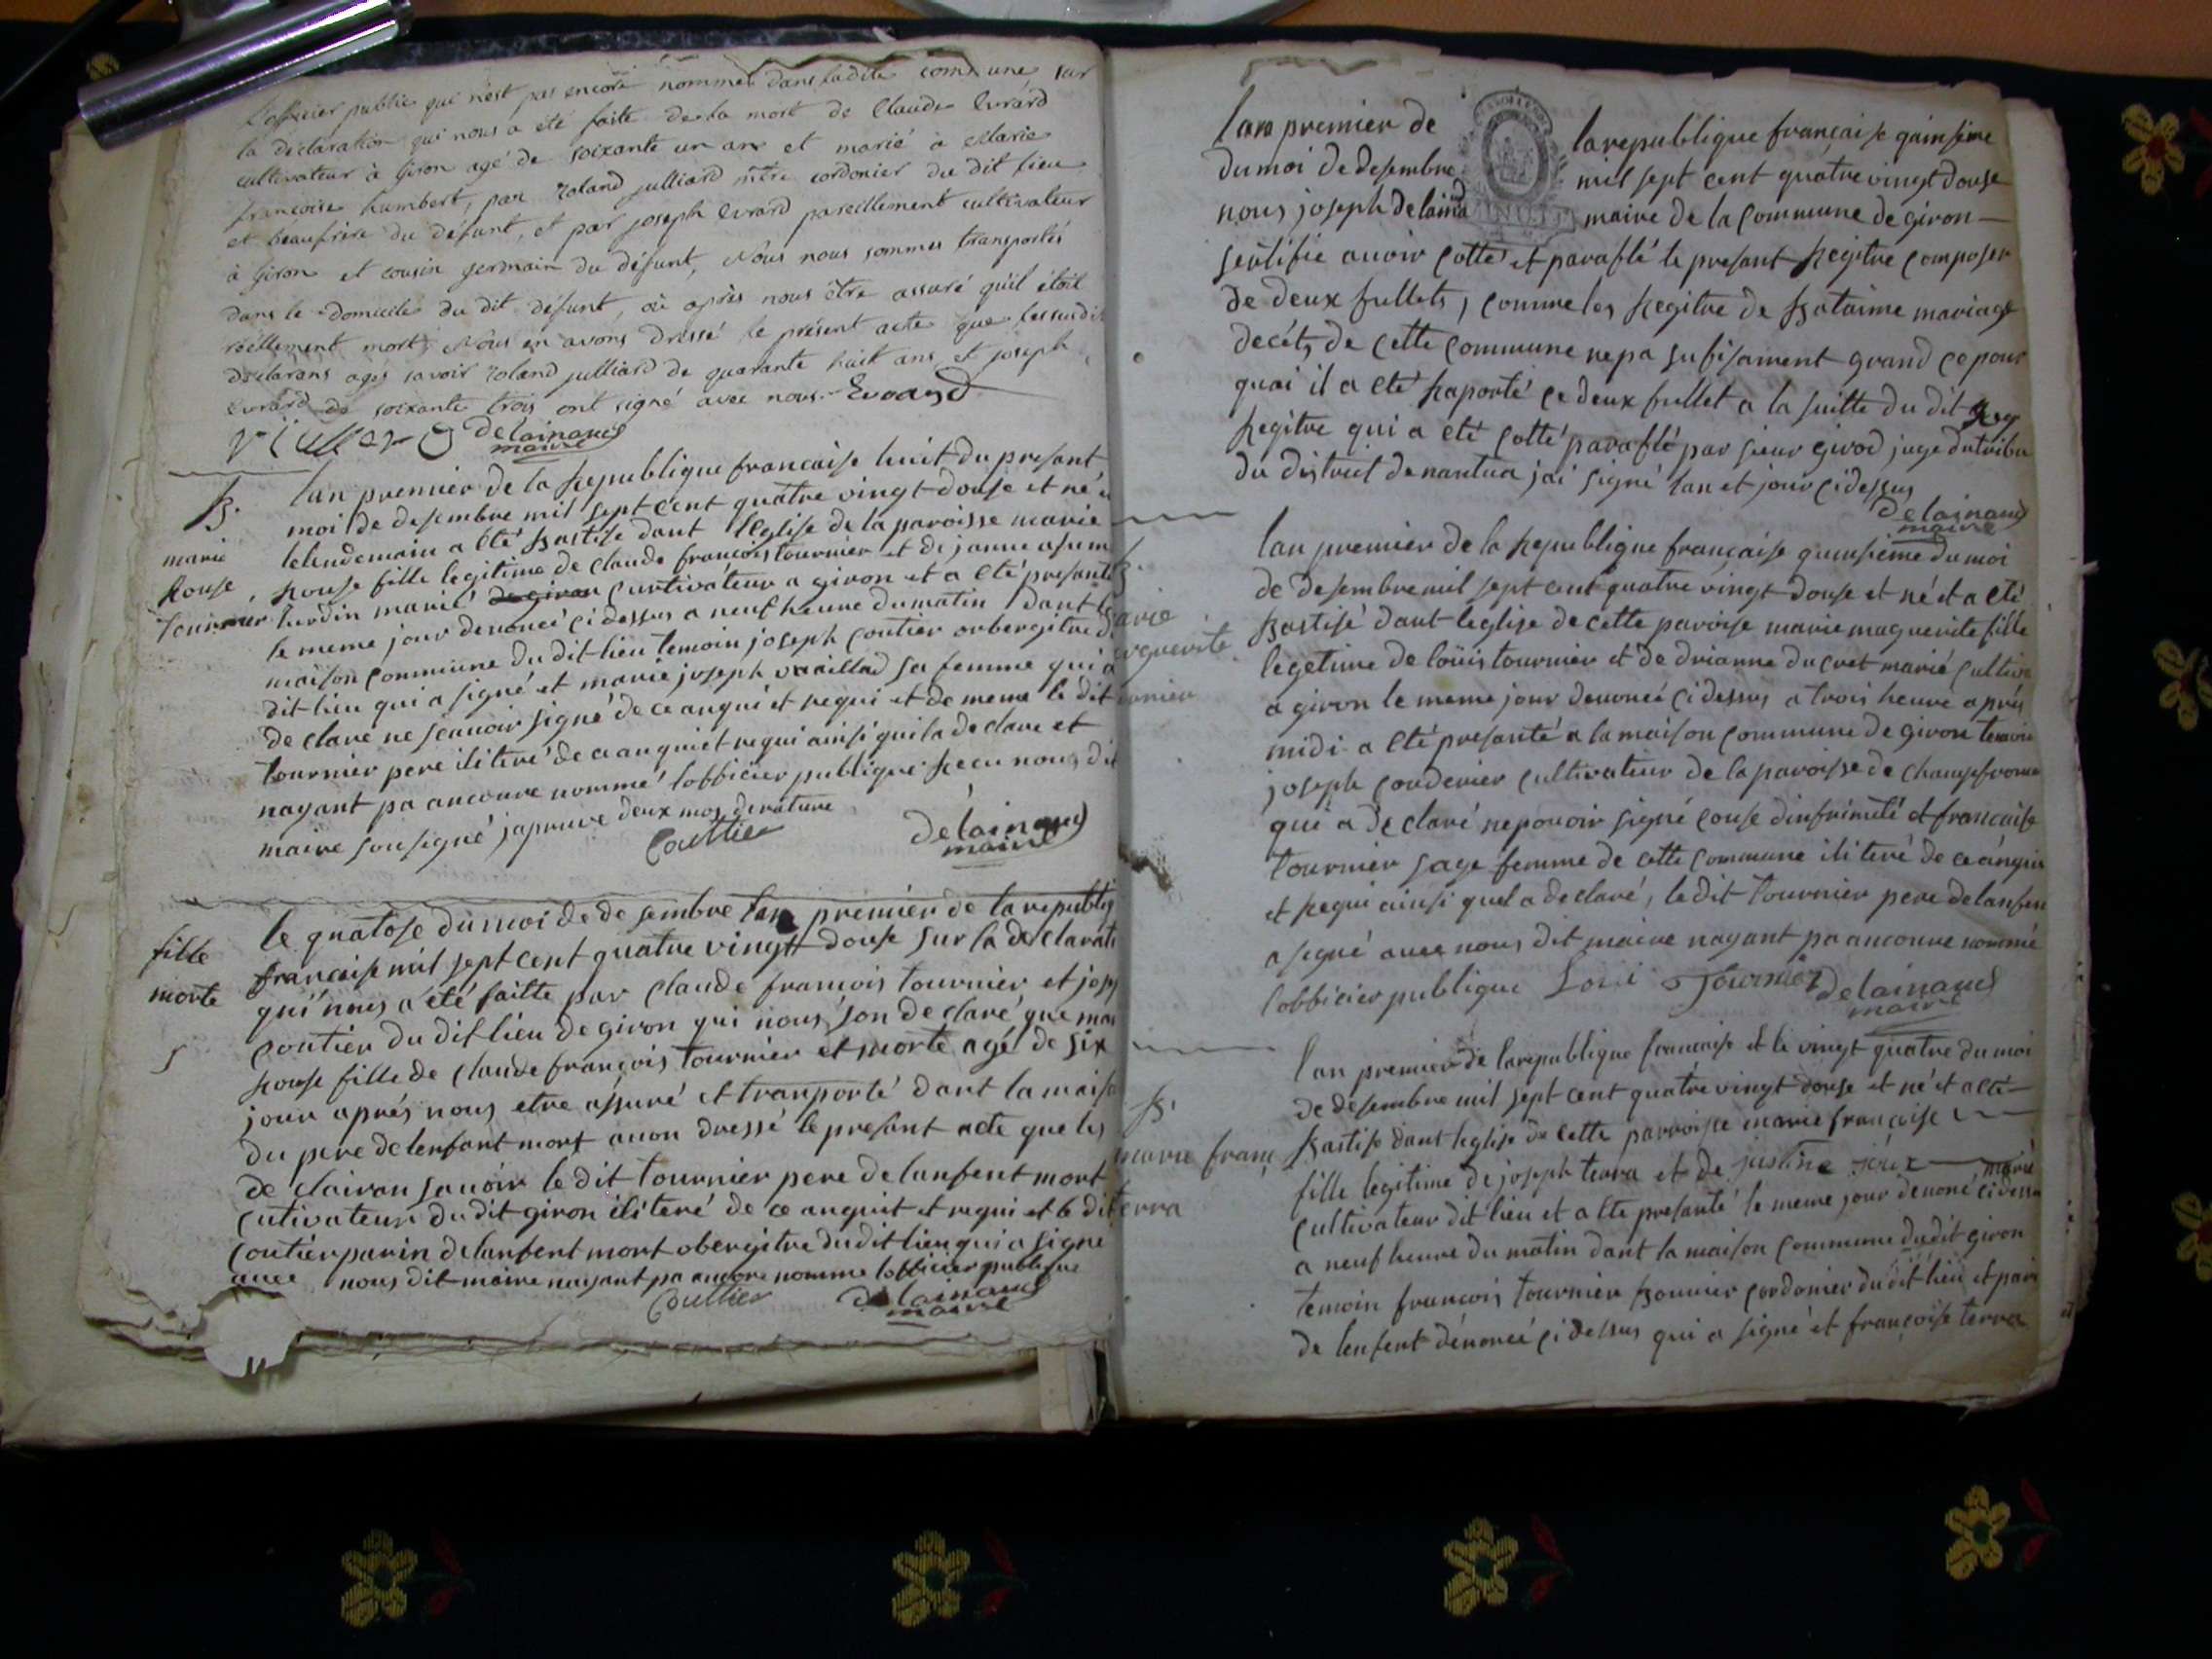 L'officier public qui n'est pas encore nommé dans ladite commune, sur
la déclaration qui nous a été faite de la mort de Claude Evrard
cultivateur à Giron agé de soixante un ans et marié à Marie
françoise humbert, par roland julliard mtre cordonier du dit lieu
et beaufrère du défunt, et par joseph Evrard pareillement cultivateur
à Giron et cousin germain du défunt, Nous nous sommes transportés
dans le domicile du dit défunt, où après nous être assuré qu'il étoit
réellement mort, Nous en avons dressé le présent acte que les susdit
déclarans agés savoir roland julliard de quarante huit ans et joseph
Evrard de soixante trois ont signé avec nous. Evrard
delainaud
maire
B.
marie
rouse
tournier
lan premier de la republique francaise huit du presant
moi de desembre mil sept cent quatre vingt douse et né
lelendemain a eté bastise dant leglise de la paroisse marie
rouse fille legitime de claude francois tournier et de janne
lurdin marié de giron curtivateur a giron et a eté presanté
le meme jour denoncé ci dessus a neuf heure du matin dant la
maison commune du dit lieu temoin joseph coutier orbergitre d
dit lieu qui a signé et marie joseph vuaillad sa femme qui a
de claré ne scauoir signé de ce anqui et requi et de meme le dit
tournier pere iliteré de ce anquiet requi ainsi quil a declare et
nayant pa ancoure nommé lobbicier publique recu nous dit
maire sousigné japrouve deux mos derature
Couttier
delainaud
maire
fille
morte
le quatose du moi de de sembre lan premier de la republiq
francaise mil sept cent quatre vingt douse sur la de clarati
qui nous a été faitte par claude francois tournier et jos
coutier du dit lieu de giron qui nous son de claré que mari
rouse fille de claude françois tournier et morte agé de six
jour aprés nous etre assuré et tranporté dant la maiso
du pere de lenfant mort auon dressé le presant acte que les
de clairan sauoir le dit tournier pere de lanfent mort
cutivateur du dit giron iliteré de ce anquit et requi et le dit
coutier parin de lanfent mort obergitre du dit lieu qui a signe
avec nous dit maire nayant pa ancore nomme lobbicier publique
Couttier
delainaud
maire
lan premier de la republique française quinsieme
du moi de desembre mil sept cent quatre vingt douse
nous joseph delainaud maire de la commune de giron
sertifie auoir cotté et paraflé le presant regitre composer
de deux fullets, comme les regitre de bataime mariage
decéts de cette commune ne pa sufisament grand ce pour
quoi il a eté raporté ce deux fullet a la suitte du dit reg
regitre qui a eté cotté paraflé par sieur girod juge du tribu
du district de nantua jai signé lan et jour ci dessus
delainaud
maire
B.
marie
marguerite
tournier
lan premier de la republique française quinsieme du moi
de desembre mil sept cent quatre vingt douse et né et a eté
bastisé dant leglise de cette paroise marie maguerite fille
legetime de loüis tournier et de drianne ducret marié cultiva
a giron le meme jour denoncé ci dessus a trois heure aprés
midi a eté presanté a la maison commune de giron temoin
joseph coudurier cultivateur de la paroisse de champfromie
qui a de claré ne pouoir signé couse dinfrimité et francaise
tournier sage femme de cette commune iliteré de ce anquit
et requi ainsi quel a declaré, le dit tournier pere de lanfen
a signé avec nous dit maire nayant pa ancoure nommé
lobbicier publique Loui Tournier delainaud
maire
B.
marie franç
terra
lan premier de la republique francaise et le vingt quatre du moi
de desembre mil sept cent quatre vingt douse et né et a eté
bastise dant leglise de cette parroisse marie françoise
fille legitime de joseph terra et de justine marié
cultivateur dit lieu et a ete presanté le meme jour denoncé ci dessu
a neuf heure du matin dant la maison commune dudit giron
temoin francois tournier cordonier du dit lieu et pari
de lenfent dénoncé ci dessus qui a signé et françoise terra